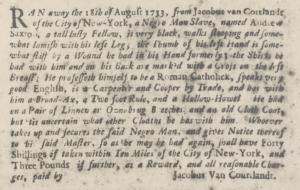 RAN away the 18th of August 1733, from Jacobus van Cortlandt
of the City of New-York, a Negro Man Slave, named Andrew
Saxon, a tall lusty Fellow, is very black, walks stooping and somewhat
lamish with his left Leg, the Thumb of his left Hand is somewhat
stiff by a Wound he had in his Hand formerly; the Shirt he
had with him and on his back are marked with a Cross on the left
Breast; He professeth himself to be a Roman Catholick, speaks very
good English, is a Carpenter and Cooper by Trade, and has with
him a Broad-Ax, a Two foot Rule, and a Hollow-Howel. He had
on a Pair of Linnen or Oznabrug Breeches, and an old Cloth Coat,
but 'tis uncertain what other Cloaths he has with him. Whoever
takes up and secures the said Negro Man, and gives Notice thereof
to his said Master, so as he may be had again, shall have Forty
Shillings if taken within Ten Miles of the City of New-York, and
Three Pounds if further, as a Reward, and all reasonable Charges,
paid by Jacobus Van Cortlandt.